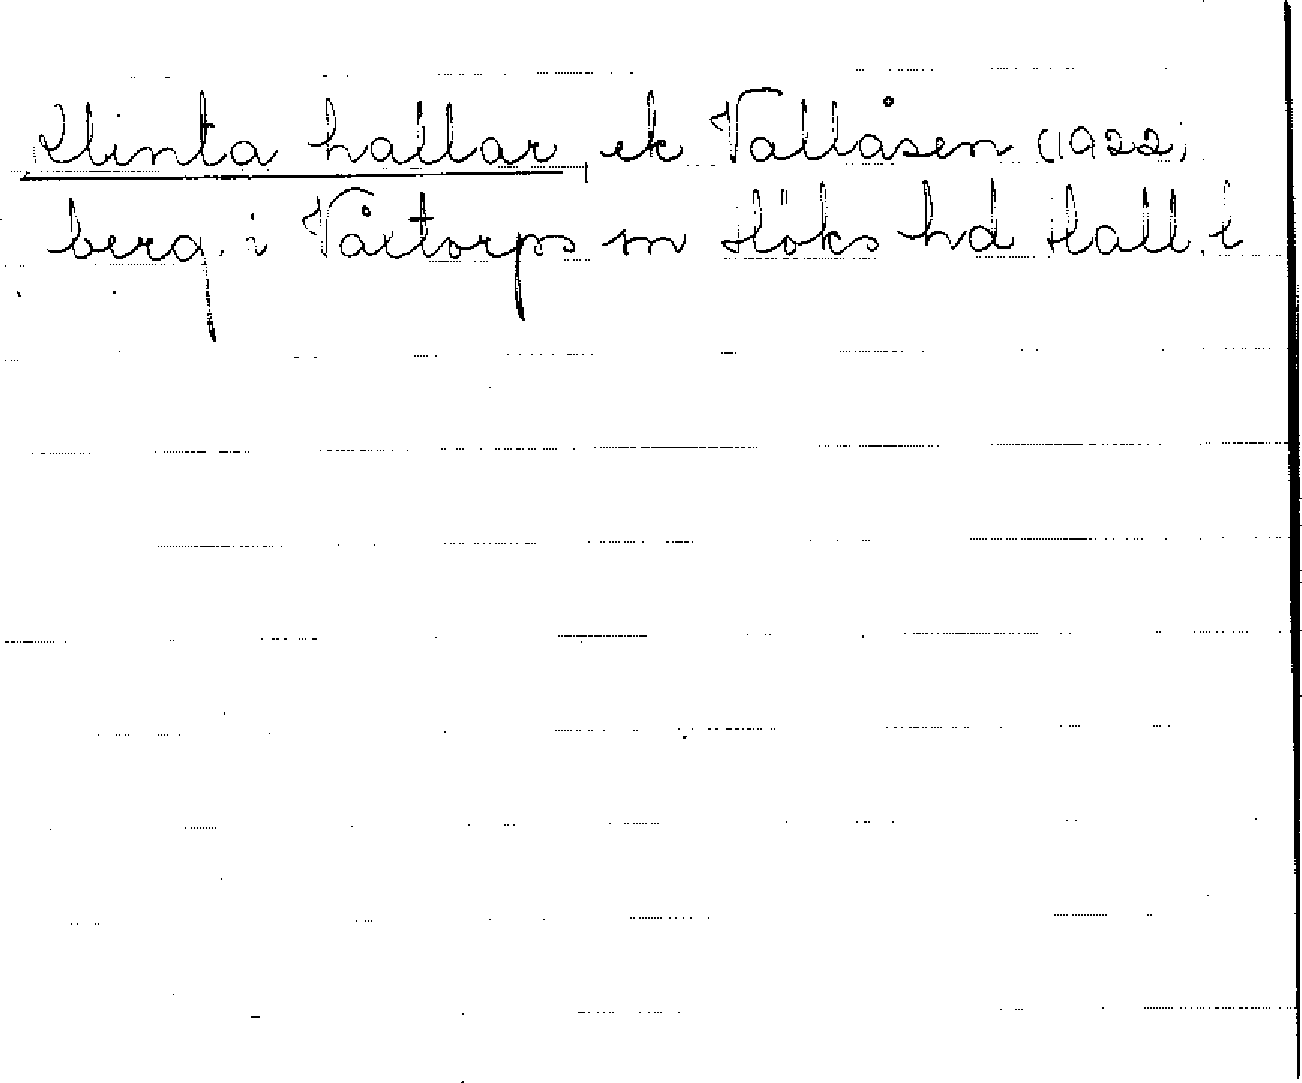 Klinta hallar, ek Vallåsen (1922)
berg. i Våxtorps sn Höks hd Hall. l